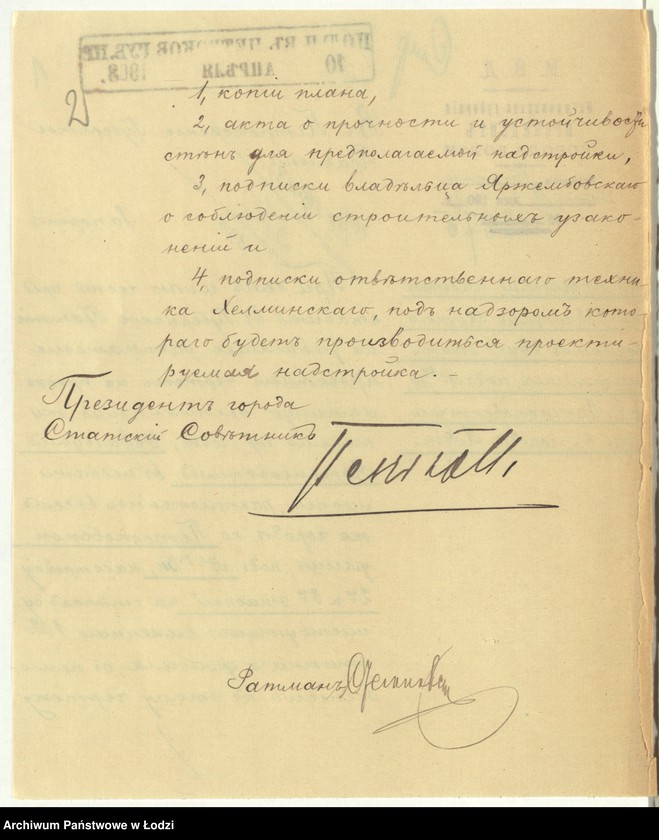 2
1, копіи плана,
2, акта о прочности и устойчивости
стѣнъ для предполагаемой надстройки,
3, подписки владѣльца Яржембовскаго
о соблюденіи строительныхъ узако-
неній и
4, подписки отвѣтственнаго техни-
ка Хелминскаго, подъ надзоромъ кото-
раго будетъ производиться проекти-
руемая надстройка.-
Президентъ города
Статскій Совѣтникъ
Ратманъ
Archiwum Państwowe w Łodzi